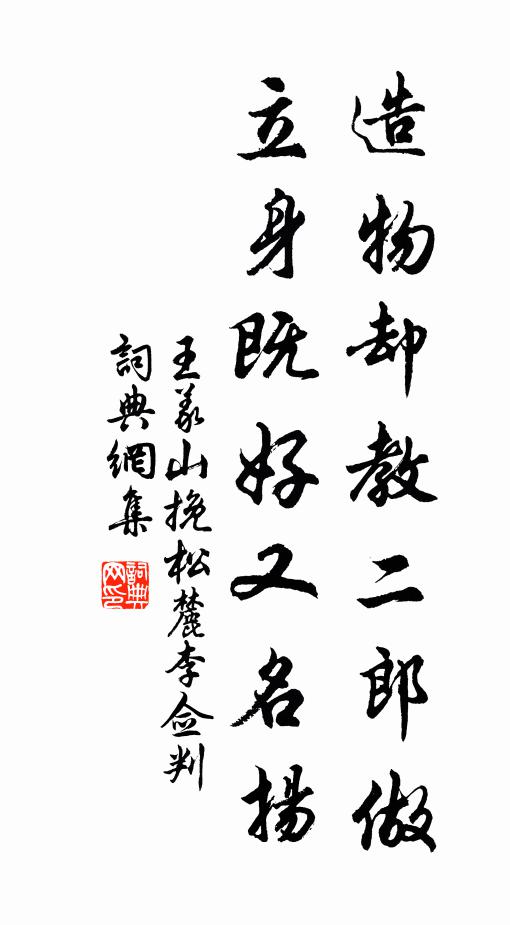 造物却教二郎做
立身既好又名揚
王義山挽松麓李僉判
詞典網集
詞典網印